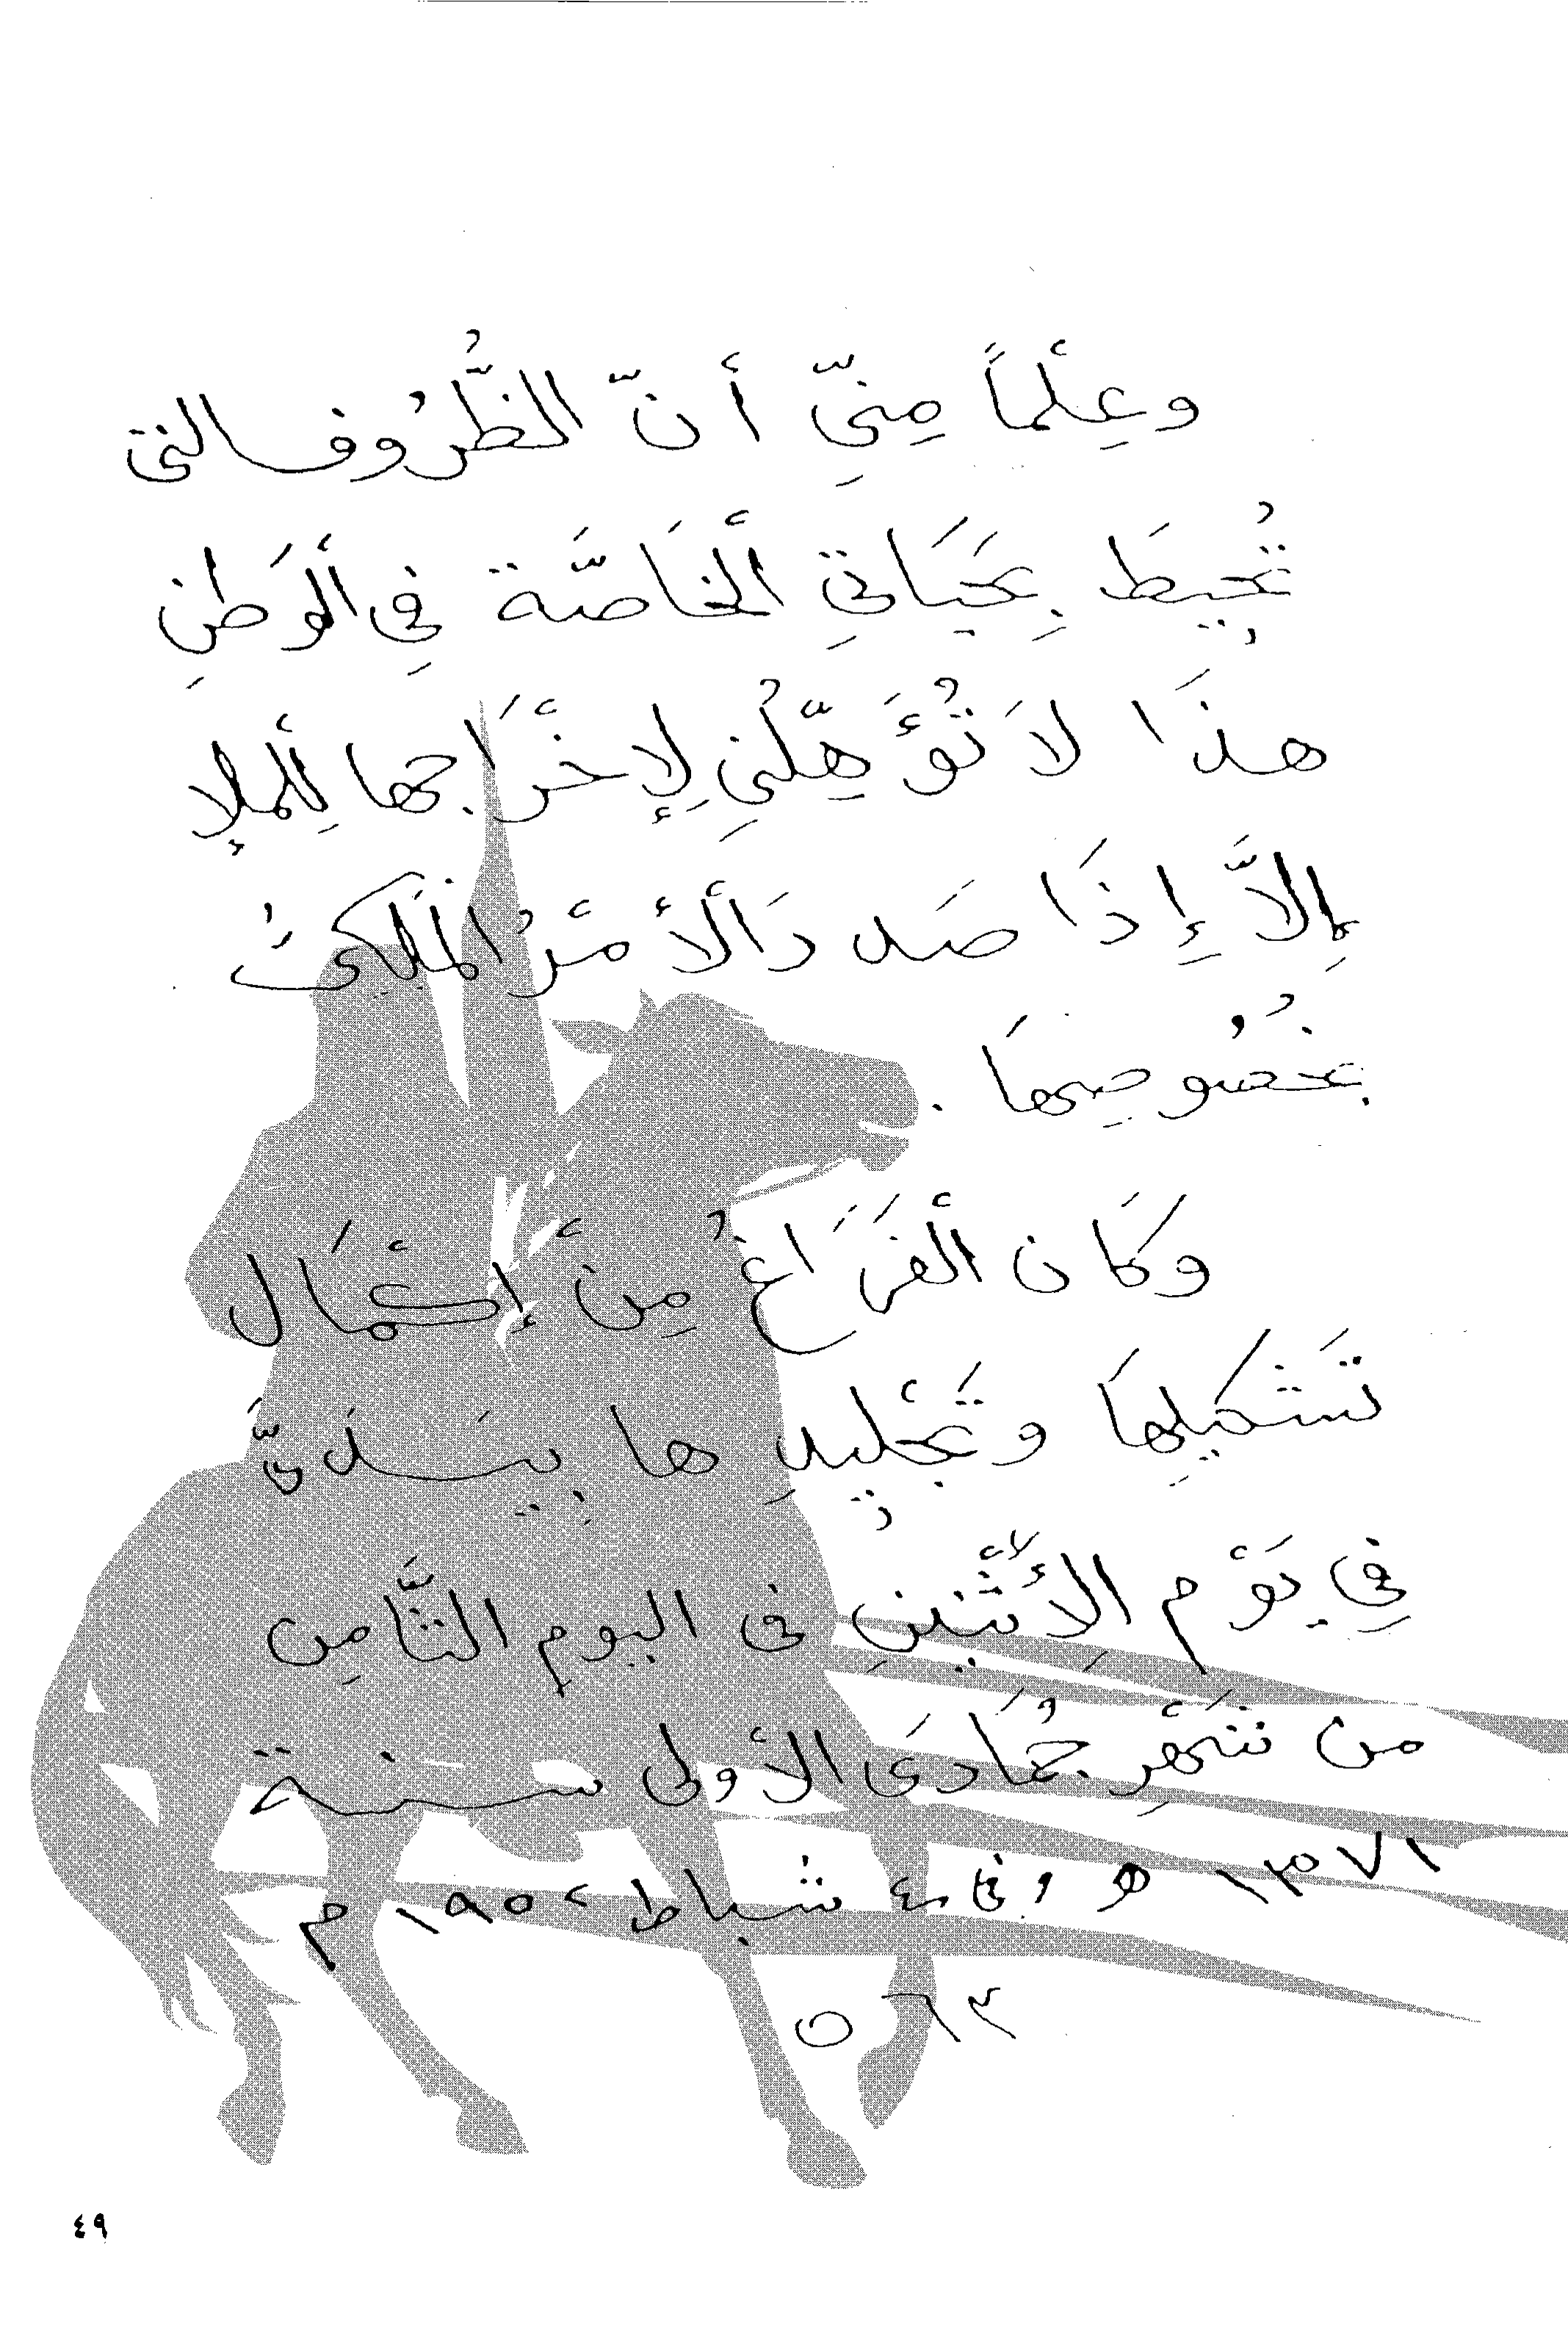 وعِلْماً مِنّي أنّ الظُّرُوف التي
تُحِيطَ بِحَيَاتي أَلْخَاصَّة فِي أَلْوَطنِ
هذَا لاَ تُؤَهِّلُني لِإخْرَاجها لِلْملإ
إلاَّ إِذَا صَدرَ أَلأمْرُ المَلَكيُّ
بخُصُوصِهَا .
وكَان أَلْفَرَاغُ مِنْ إِكْمَال
تَشْكيلِهَا وتَجْلِيدِها بِيَدَيَّ
فِي يَوْم الإِثْنِينِ في اليوم الثَّامِن
من شَهْرِ جُمَادَى الأولى سنة
١٣٧١ ه وفي ٤ شباط ١٩٥٢ م
٥٦٣
٤٩